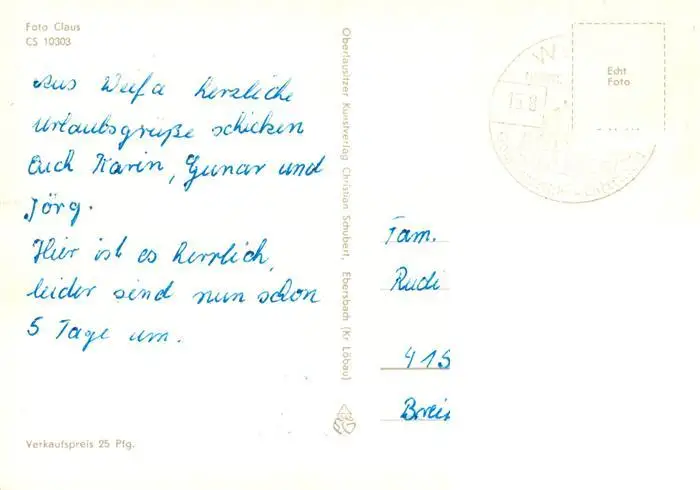 Foto Claus
CS 10303
Aus Weifa herzliche
Urlaubsgrüße schicken
Euch Karin, Gunar und
Jörg.
Hier ist es herrlich,
leider sind nun schon
5 Tage um.
Verkaufspreis 25 Pfg.
Oberlausitzer Kunstverlag Christian Schubert, Ebersbach (Kr Löbau)
W
Echt
Foto
Fam.
Rudi
415
Brei